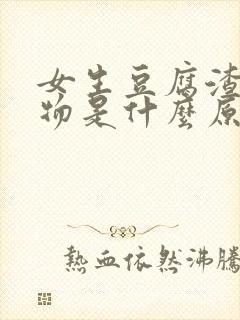 女生豆腐渣
物是什麼原
熱血依然沸騰